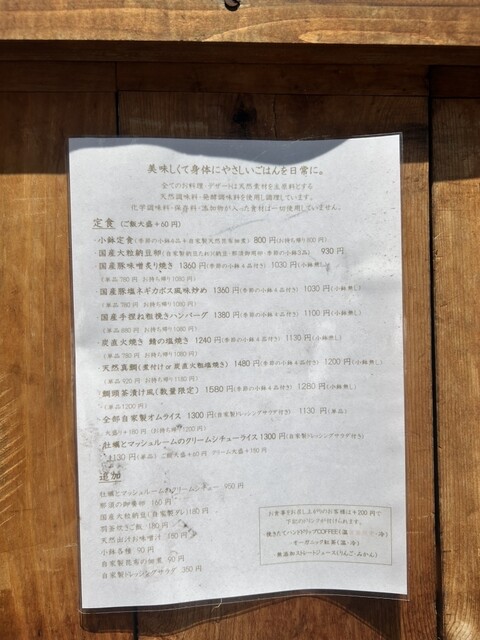 美味しくて身体にやさしいごはんを日常に。
全てのお料理・デザートは天然素材を主原料とする
天然調味料・発酵調味料を使用し調理しています。
化学調味料・保存料・添加物が入った食材は一切使用していません。
定食 (ご飯大盛+60円)
・小鉢定食(季節の小鉢4品+自家製天然昆布佃煮) 800円(お持ち帰り800円)
国産大粒納豆卵(自家製納豆たれ 季節の小鉢3品) 930円
・国産豚味噌炙り焼き 1360円(季節の小鉢4品付き) 1030円(小鉢無し)
(単品780円 お持ち帰り1080円)
・国産豚塩ネギカボス風味炒め 1360円(季節の小鉢4品付き) 1030円(小鉢無し)
(単品780円 お持ち帰り1080円)
・国産手捏ね粗挽きハンバーグ 1380円(季節の小鉢4品付き) 1100円(小鉢無し)
・炭直火焼き 鯖の塩焼き 1240円(季節の小鉢4品付き) 1130円(小鉢無し)
・天然真鯛(煮付けor炭直火塩焼き) 1480円(季節の小鉢4品付き) 1200円(小鉢無し)
(単品920円 お持ち帰り1180円)
・鯛頭茶漬け風(数量限定) 1580円(季節の小鉢4品付き) 1280円(小鉢無し)
(単品1200円)
・全部自家製オムライス 1300円(自家製ドレッシングサラダ付き) 1130円(単品)
大盛り+180円 (お持ち帰り1200円)
・牡蠣とマッシュルームのクリームシチューライス1300円(自家製ドレッシングサラダ付き)
1130円(単品) ご飯大盛+60円 クリーム大盛+180円
追加
牡蠣とマッシュルームのクリームシチュー 950円
160円
国産大粒納豆(自家製ダレ)180円
羽茶炊きご飯 180円
天然出汁お味噌汁 180円
小鉢各種 90円
自家製昆布の佃煮 90円
自家製ドレッシングサラダ 350円
お食事をお召し上がりのお客様は+200円で
下記のドリンクが付けられます。
・挽きたてハンドドリップCOFFEE(温・冷)
・オーガニック紅茶(温・冷)
・無添加ストレートジュース(りんご・みかん)